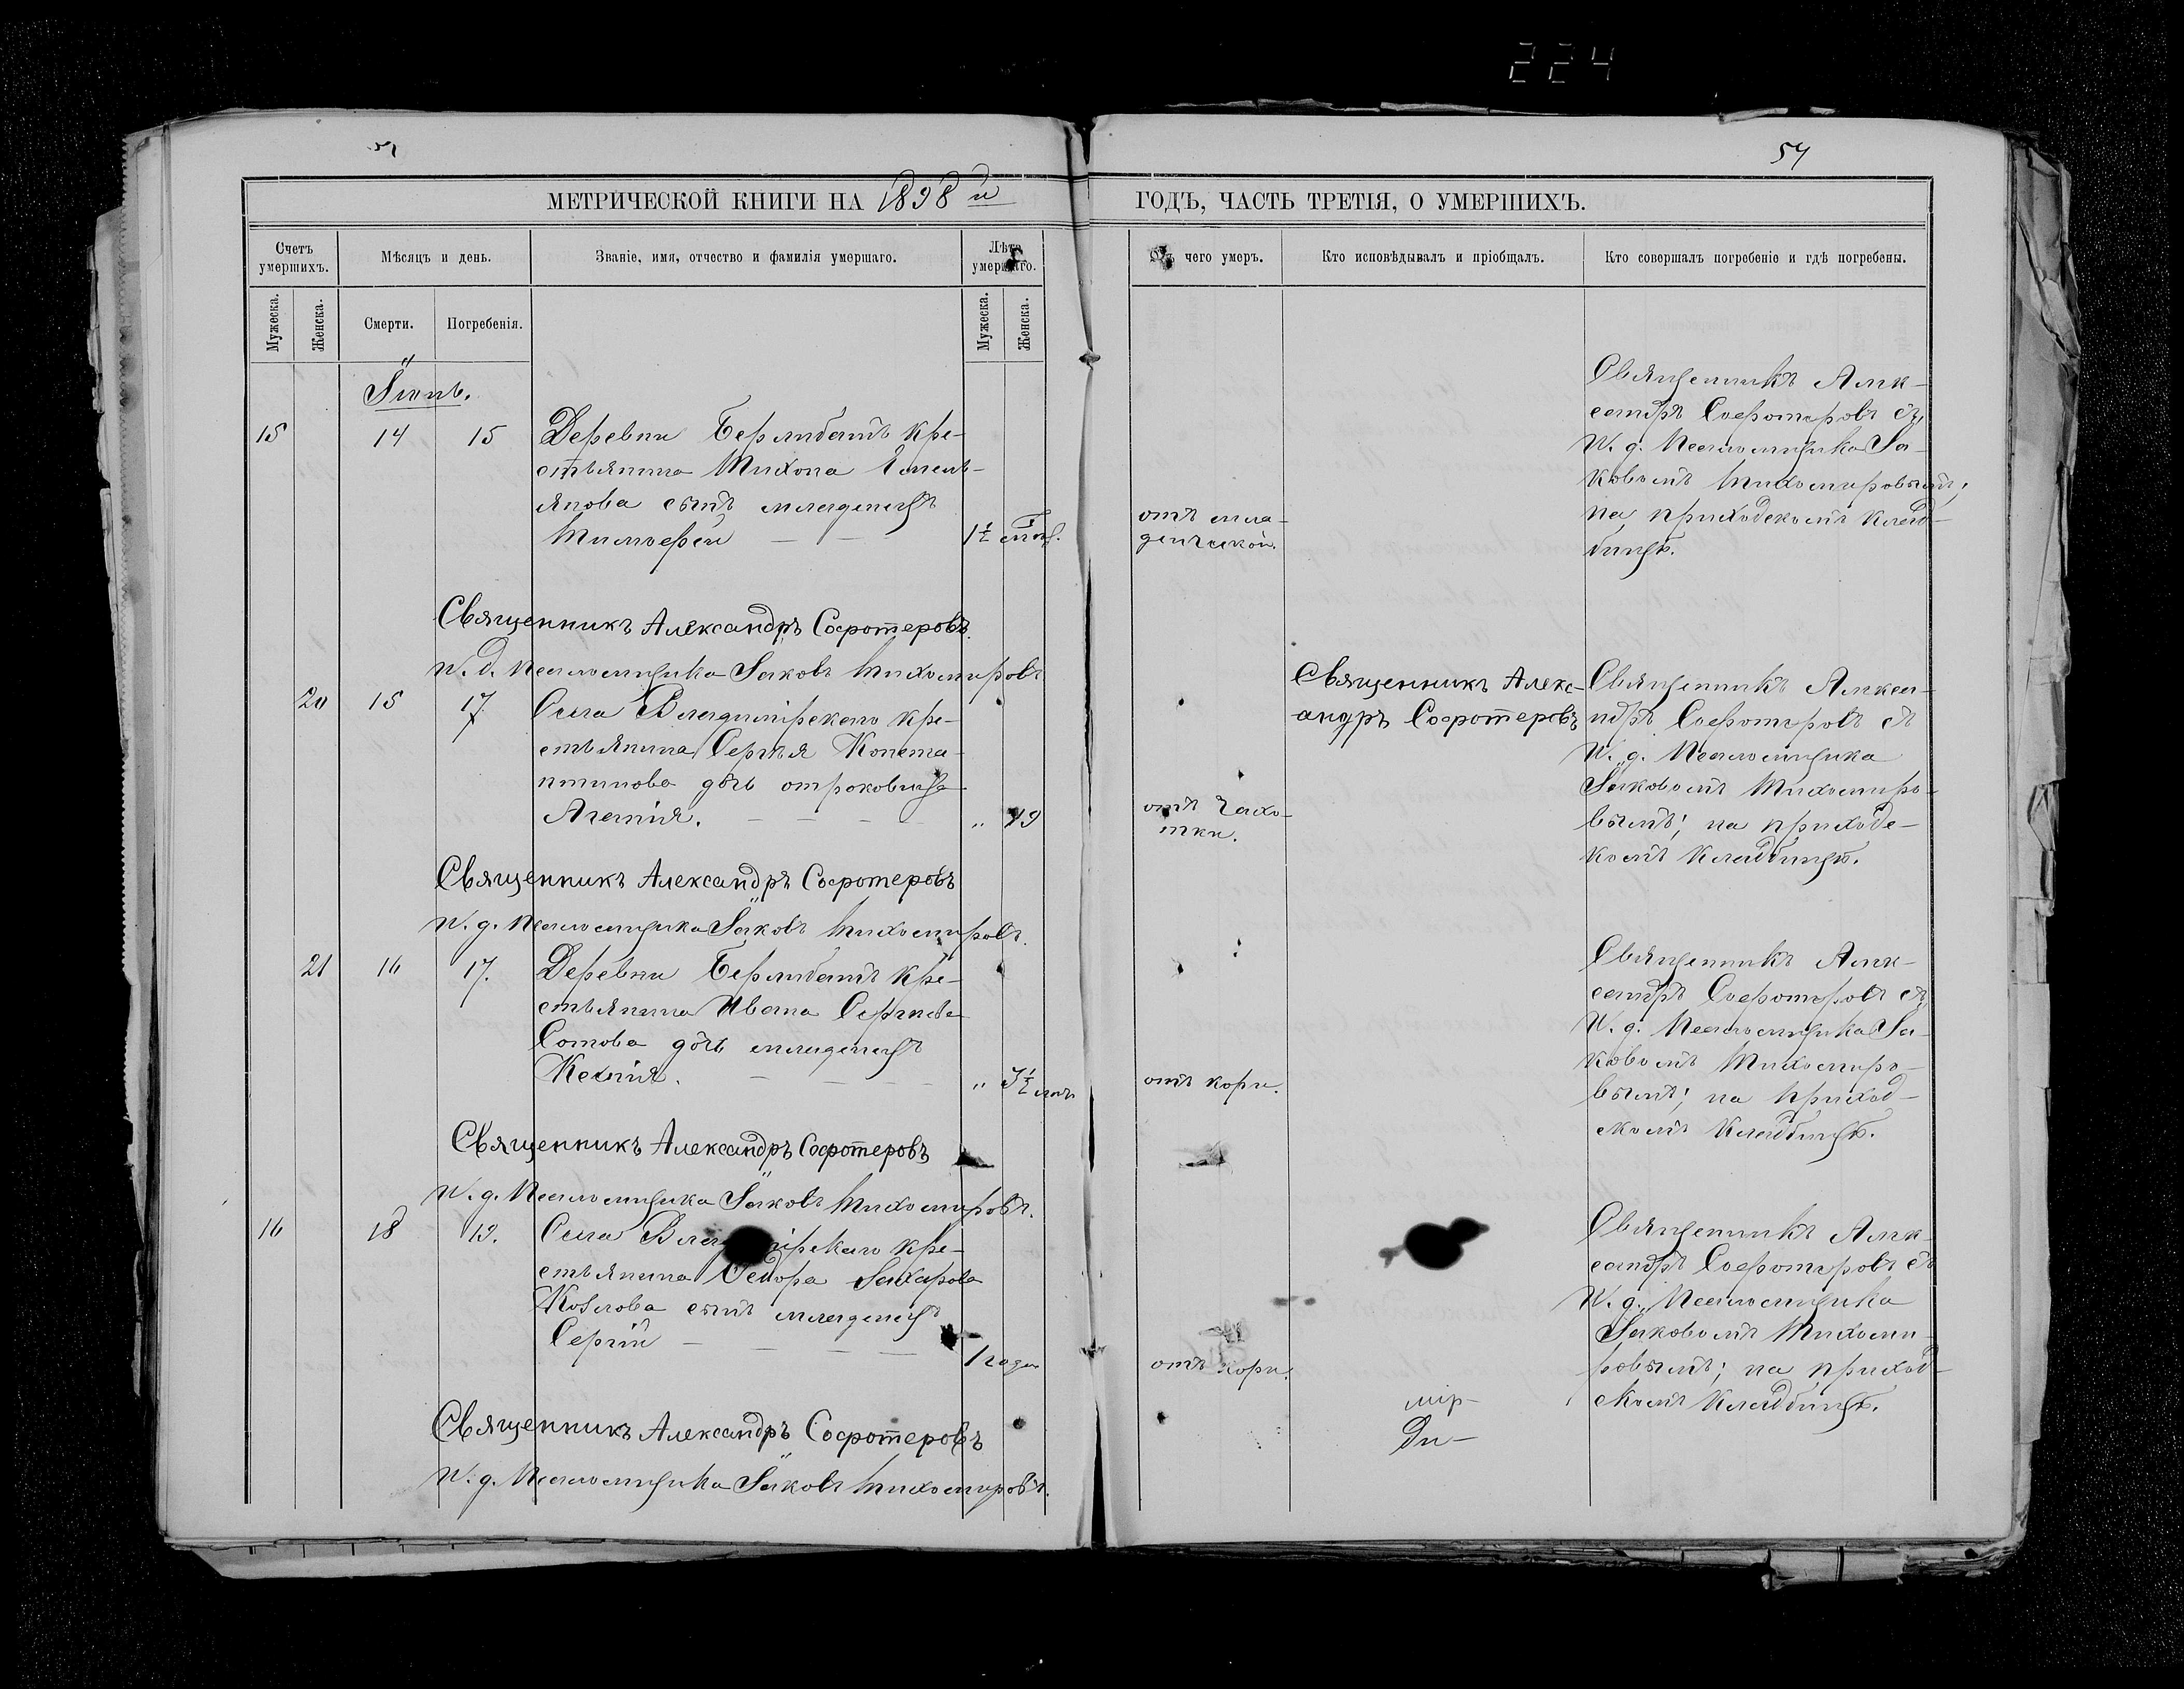 224
54
МЕТРИЧЕСКОЙ КНИГИ НА 1898 й
ГОДЪ, ЧАСТЬ ТРЕТІЯ, О УМЕРШИХЪ.
Счетъ умершихъ.
Мѣсяцъ и день.
Званіе, имя, отчество и фамилія умершаго.
Лѣта умершаго.
Отъ чего умеръ.
Кто исповѣдывалъ и пріобщалъ.
Кто совершалъ погребеніе и гдѣ погребены.
Мужеска.
Женска.
Смерти.
Погребенія.
Мужеска.
Женска.
Іюнь.
15 14 15 Деревни Берлибашъ кре-
стьянина Тихона Емель-
янова сынъ младенецъ
Тимофей 1½ мѣс.
отъ мла-
денческой.
Священникъ Алек-
сандръ Софотеровъ съ
И. д. Псаломщика Іа-
ковомъ Тихомировымъ;
на приходскомъ клад-
бищѣ.
Священникъ Александръ Софотеровъ.
И. д. Псаломщика Іаковъ Тихомировъ
20 15 17 Села Владимірскаго кре-
стьянина Сергѣя Конста-
нтинова дочь отроковица
Агапія. " 19
отъ Чахо-
тки.
Священникъ Алекс-
андръ Софотеровъ
Священникъ Алекса-
ндръ Софотеровъ съ
И. д. Псаломщика
Іаковомъ Тихомиро-
вымъ; на приходс-
комъ кладбищѣ.
Священникъ Александръ Софотеровъ
И. д. Псаломщика Іаковъ Тихомировъ.
21 16 17. Деревни Берлибашъ кре-
стьянина Ивана
дочь младенецъ
" 3½
отъ кори.
Священникъ Алек-
сандръ Софотеровъ съ
И. д. Псаломщика Іа-
ковомъ Тихомиро-
вымъ; на приход-
скомъ кладбищѣ.
Священникъ Александръ Софотеровъ
И. д. Псаломщика Іаковъ Тихомировъ.
16 18 19. Села Владимірскаго кре-
стьянина Ѳедора Захарова
Козлова сынъ младенецъ
Сергій 1 года
отъ кори.
Священникъ Алек-
сандръ Софотеровъ съ
И. д. Псаломщика
Іаковомъ Тихоми-
ровымъ; на приход-
скомъ кладбищѣ.
мір-
ди-
Священникъ Александръ Софотеровъ
И. д. Псаломщика Іаковъ Тихомировъ.